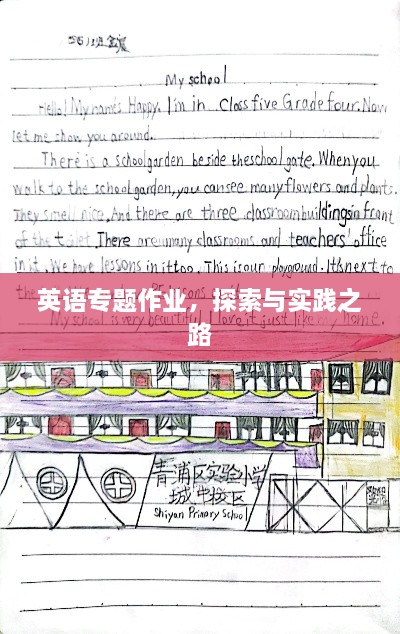 My school
Hello! My name's Happy. I'm in Class five Grade four. Now
let me show you around.
There is a school garden beside the school gate. When you
walk to the school garden, you can see many flowers and plants.
They smell nice. And there are three classroom buildings in front
of the toilet. There are many classrooms and teachers' office
in it. We have lessons in it too. This is our playground. It's next to
英语专题作业，探索与实践之
路
My school is very beautiful. I love it just like my home.
青浦区实验小学
城中校区
Shiyan Primary School